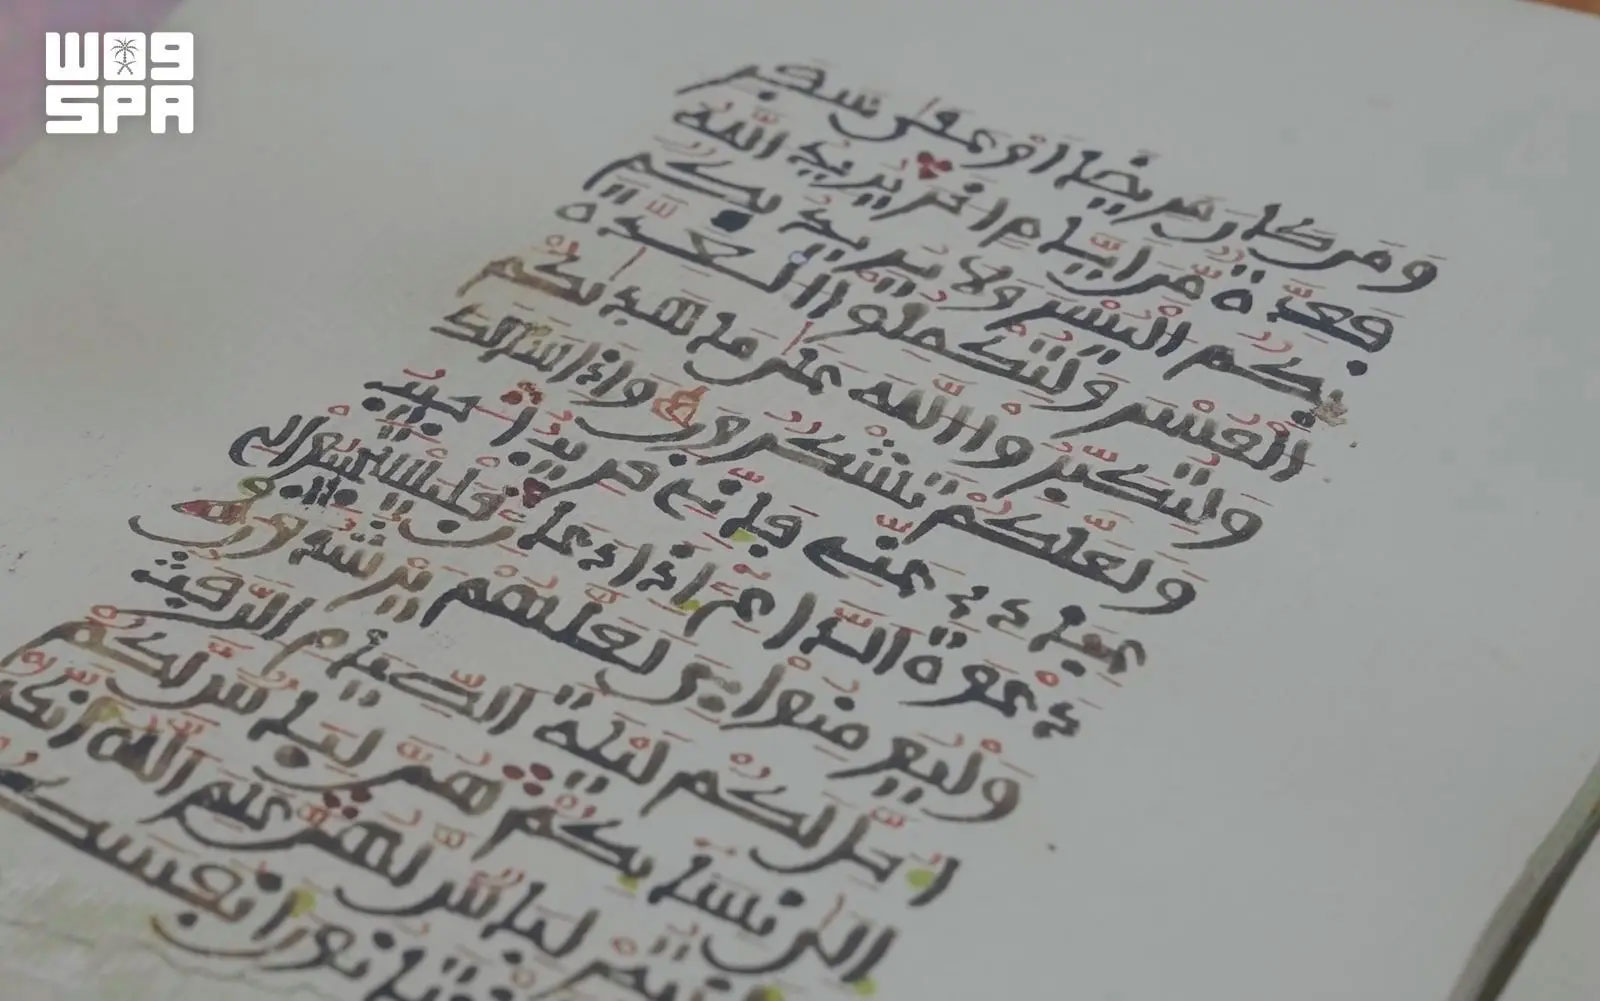 W09
SPA
ومن كان مريضا او على سفر
فعدة من ايام اخر يريد الله
بكم اليسر ولا يريد بكم
العسر ولتكملوا العدة
ولتكبروا الله على ما هديكم
ولعلكم تشكرون واذا سالك
عبادي عني فاني قريب اجيب
دعوة الداع اذا دعان فليستجيبوا لي
وليومنوا بي لعلهم يرشدون
احل لكم ليلة الصيام الرفث
الى نسائكم هن لباس لكم
وانتم لباس لهن علم الله انكم
انفسكم